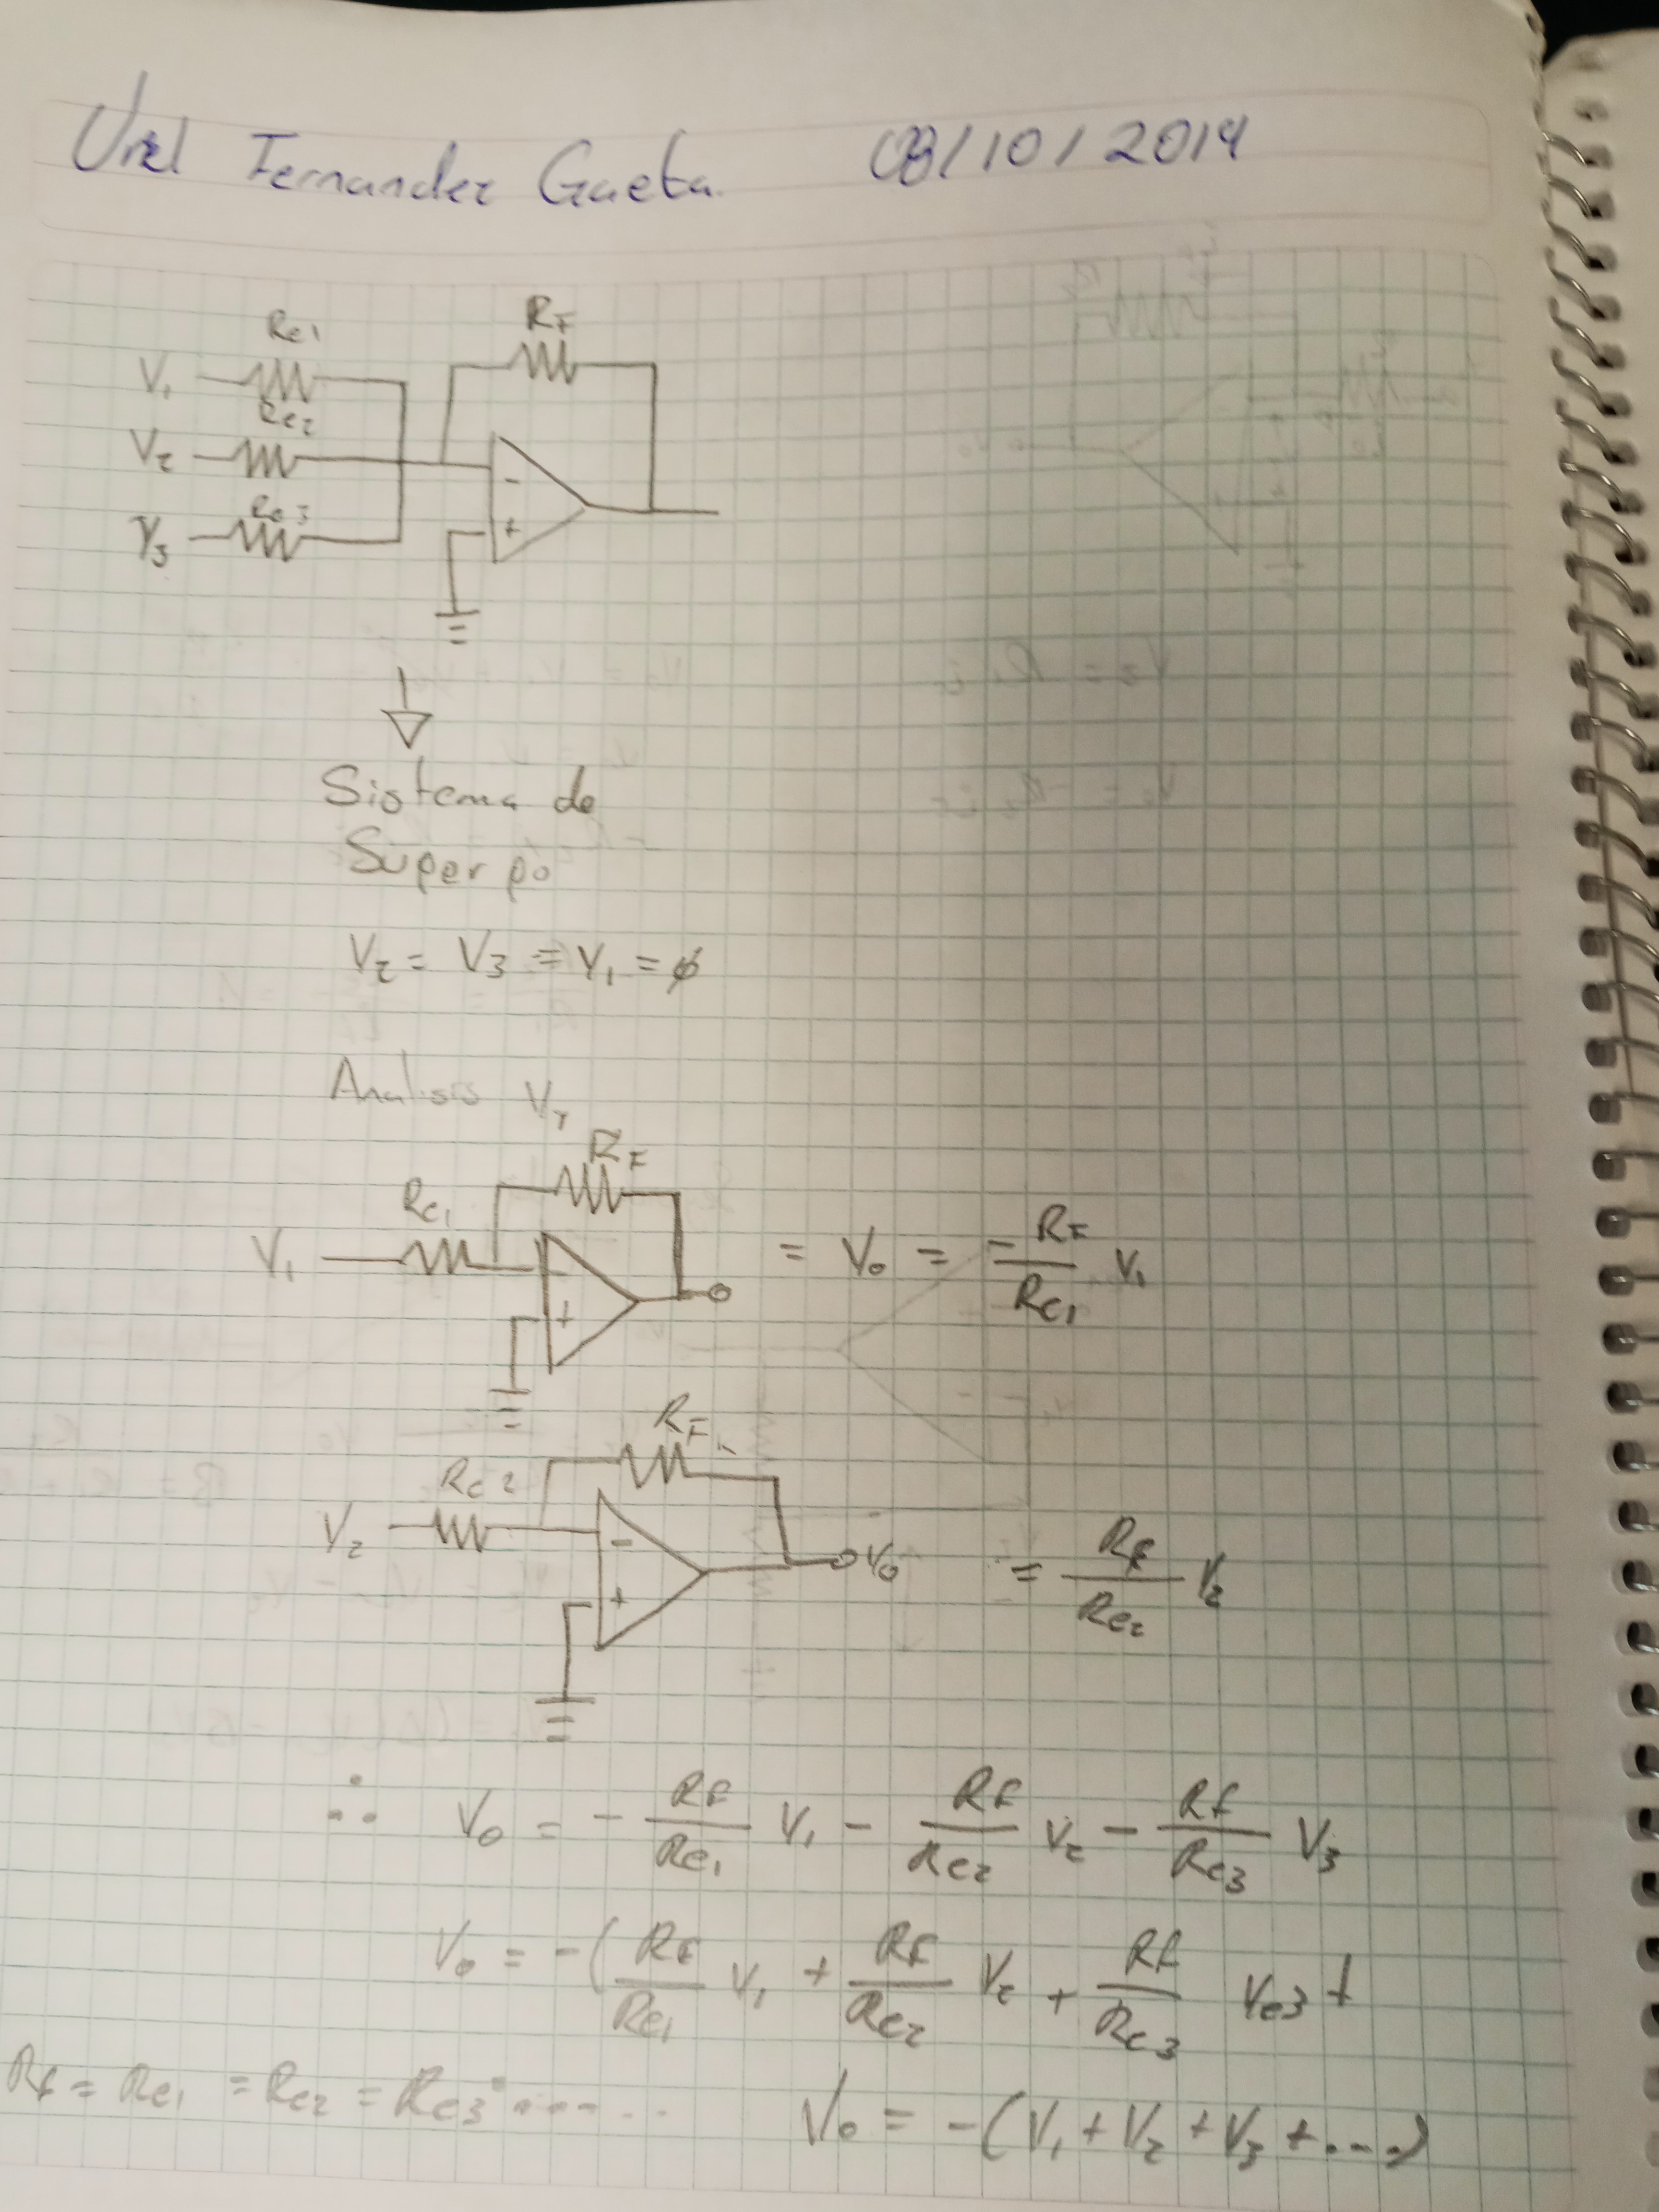 Uriel Fernandez Gaeta. 08/10/2019
Re1
RF
V1
Re2
V2
-
Re3
V3
+
Sistema de
Superpo
V2 = V3 = V1 = ø
Analisis V1
RF
Re1
V1
-
+
= Vo = -RF/Re1 V1
RF
Re2
V2
-
+
Vo
= Rf/Re2 V2
∴ Vo = - RF/Re1 V1 - RF/Re2 V2 - Rf/Re3 V3
Vo = -(RF/Re1 V1 + RF/Re2 V2 + Rf/Re3 Ve3 +
Rf = Re1 = Re2 = Re3 ......
Vo = -(V1 + V2 + V3 + ....)